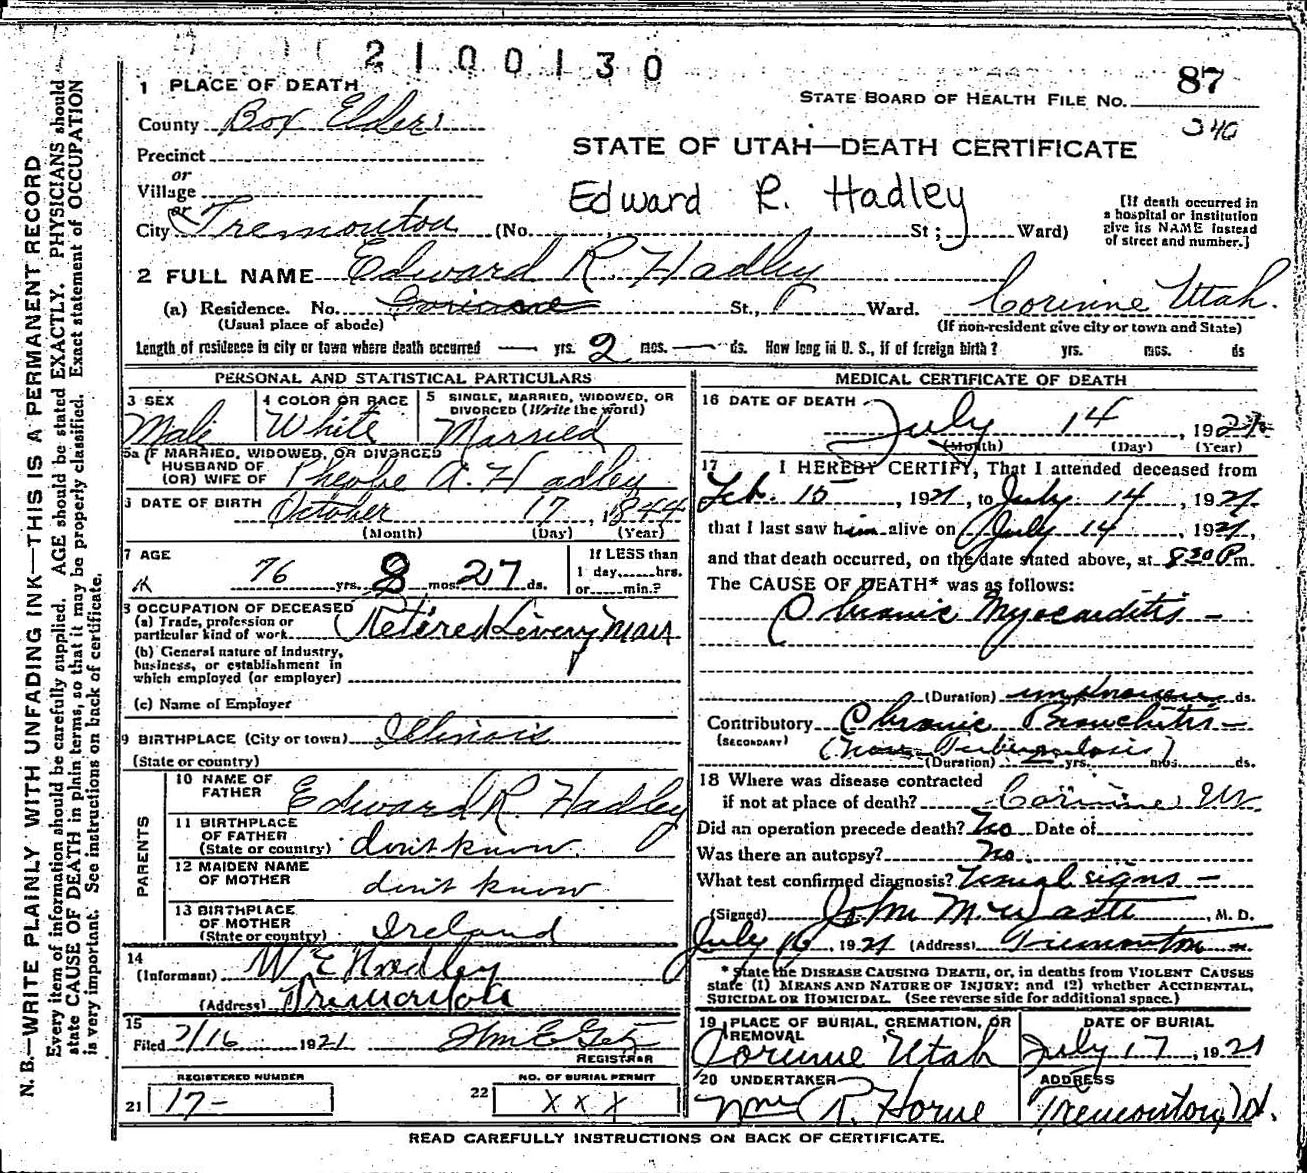 2100130
87
STATE BOARD OF HEALTH FILE NO.
340
1 PLACE OF DEATH
County Box Elder
STATE OF UTAH—DEATH CERTIFICATE
Precinct
or
Village
or
Edward R. Hadley
[If death occurred in a hospital or institution give its NAME instead of street and number.]
City Tremonton (No. St; Ward)
2 FULL NAME Edward R. Hadley
(a) Residence. No. Corinne St., Ward. Corinne Utah.
(Usual place of abode) (If non-resident give city or town and State)
Length of residence in city or town where death occurred — yrs. 2 mos. — ds. How long in U. S., if of foreign birth? yrs. mos. ds
PERSONAL AND STATISTICAL PARTICULARS
3 SEX 4 COLOR OR RACE 5 SINGLE, MARRIED, WIDOWED, OR DIVORCED (Write the word)
Male White Married
5a IF MARRIED, WIDOWED, OR DIVORCED
HUSBAND OF
(OR) WIFE OF Pheobe A. Hadley
6 DATE OF BIRTH October 17, 1844
(Month) (Day) (Year)
7 AGE 76 yrs. 8 mos. 27 ds.
If LESS than 1 day,......hrs. or......min.?
8 OCCUPATION OF DECEASED
(a) Trade, profession or particular kind of work Retired Livery Man
(b) General nature of industry, business, or establishment in which employed (or employer)
(c) Name of Employer
9 BIRTHPLACE (City or town) Illinois
(State or country)
PARENTS
10 NAME OF FATHER Edward R Hadley
11 BIRTHPLACE OF FATHER (State or country) don't know
12 MAIDEN NAME OF MOTHER don't know
13 BIRTHPLACE OF MOTHER (State or country) Ireland
14 (Informant) W E Hadley
(Address) Tremonton
15 Filed 7/16 1921 Wm E Getz
REGISTRAR
REGISTERED NUMBER NO. OF BURIAL PERMIT
21 17- 22 X X X
MEDICAL CERTIFICATE OF DEATH
16 DATE OF DEATH July 14, 1921
(Month) (Day) (Year)
17 I HEREBY CERTIFY, That I attended deceased from
Feb. 15, 1921, to July 14, 1921,
that I last saw him alive on July 14, 1921,
and that death occurred, on the date stated above, at 8 30 P m.
The CAUSE OF DEATH* was as follows:
Chronic Myocarditis —
(Duration) unknown ds.
Contributory Chronic Bronchitis —
(SECONDARY) (Non Tuberculosis)
(Duration) yrs. mos. ds.
18 Where was disease contracted
if not at place of death? Corinne Ut
Did an operation precede death? No Date of
Was there an autopsy? No.
What test confirmed diagnosis? Usual signs —
(Signed) John M, M. D.
July 16, 1921 (Address) Tremonton
* State the DISEASE CAUSING DEATH, or, in deaths from VIOLENT CAUSES
state (1) MEANS AND NATURE OF INJURY: and (2) whether ACCIDENTAL,
SUICIDAL OR HOMICIDAL. (See reverse side for additional space.)
19 PLACE OF BURIAL, CREMATION, OR REMOVAL DATE OF BURIAL
Corinne Utah July 17, 1921
20 UNDERTAKER ADDRESS
Wm R. Horne Tremonton, Ut.
READ CAREFULLY INSTRUCTIONS ON BACK OF CERTIFICATE.
N. B.—WRITE PLAINLY WITH UNFADING INK—THIS IS A PERMANENT RECORD
Every item of information should be carefully supplied. AGE should be stated EXACTLY. PHYSICIANS should
state CAUSE OF DEATH in plain terms, so that it may be properly classified. Exact statement of OCCUPATION
is very important. See instructions on back of certificate.